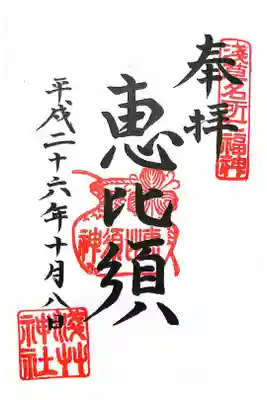 淺草名所七福神
奉拝
恵比須
平成二十六年十月八日
淺草
神社